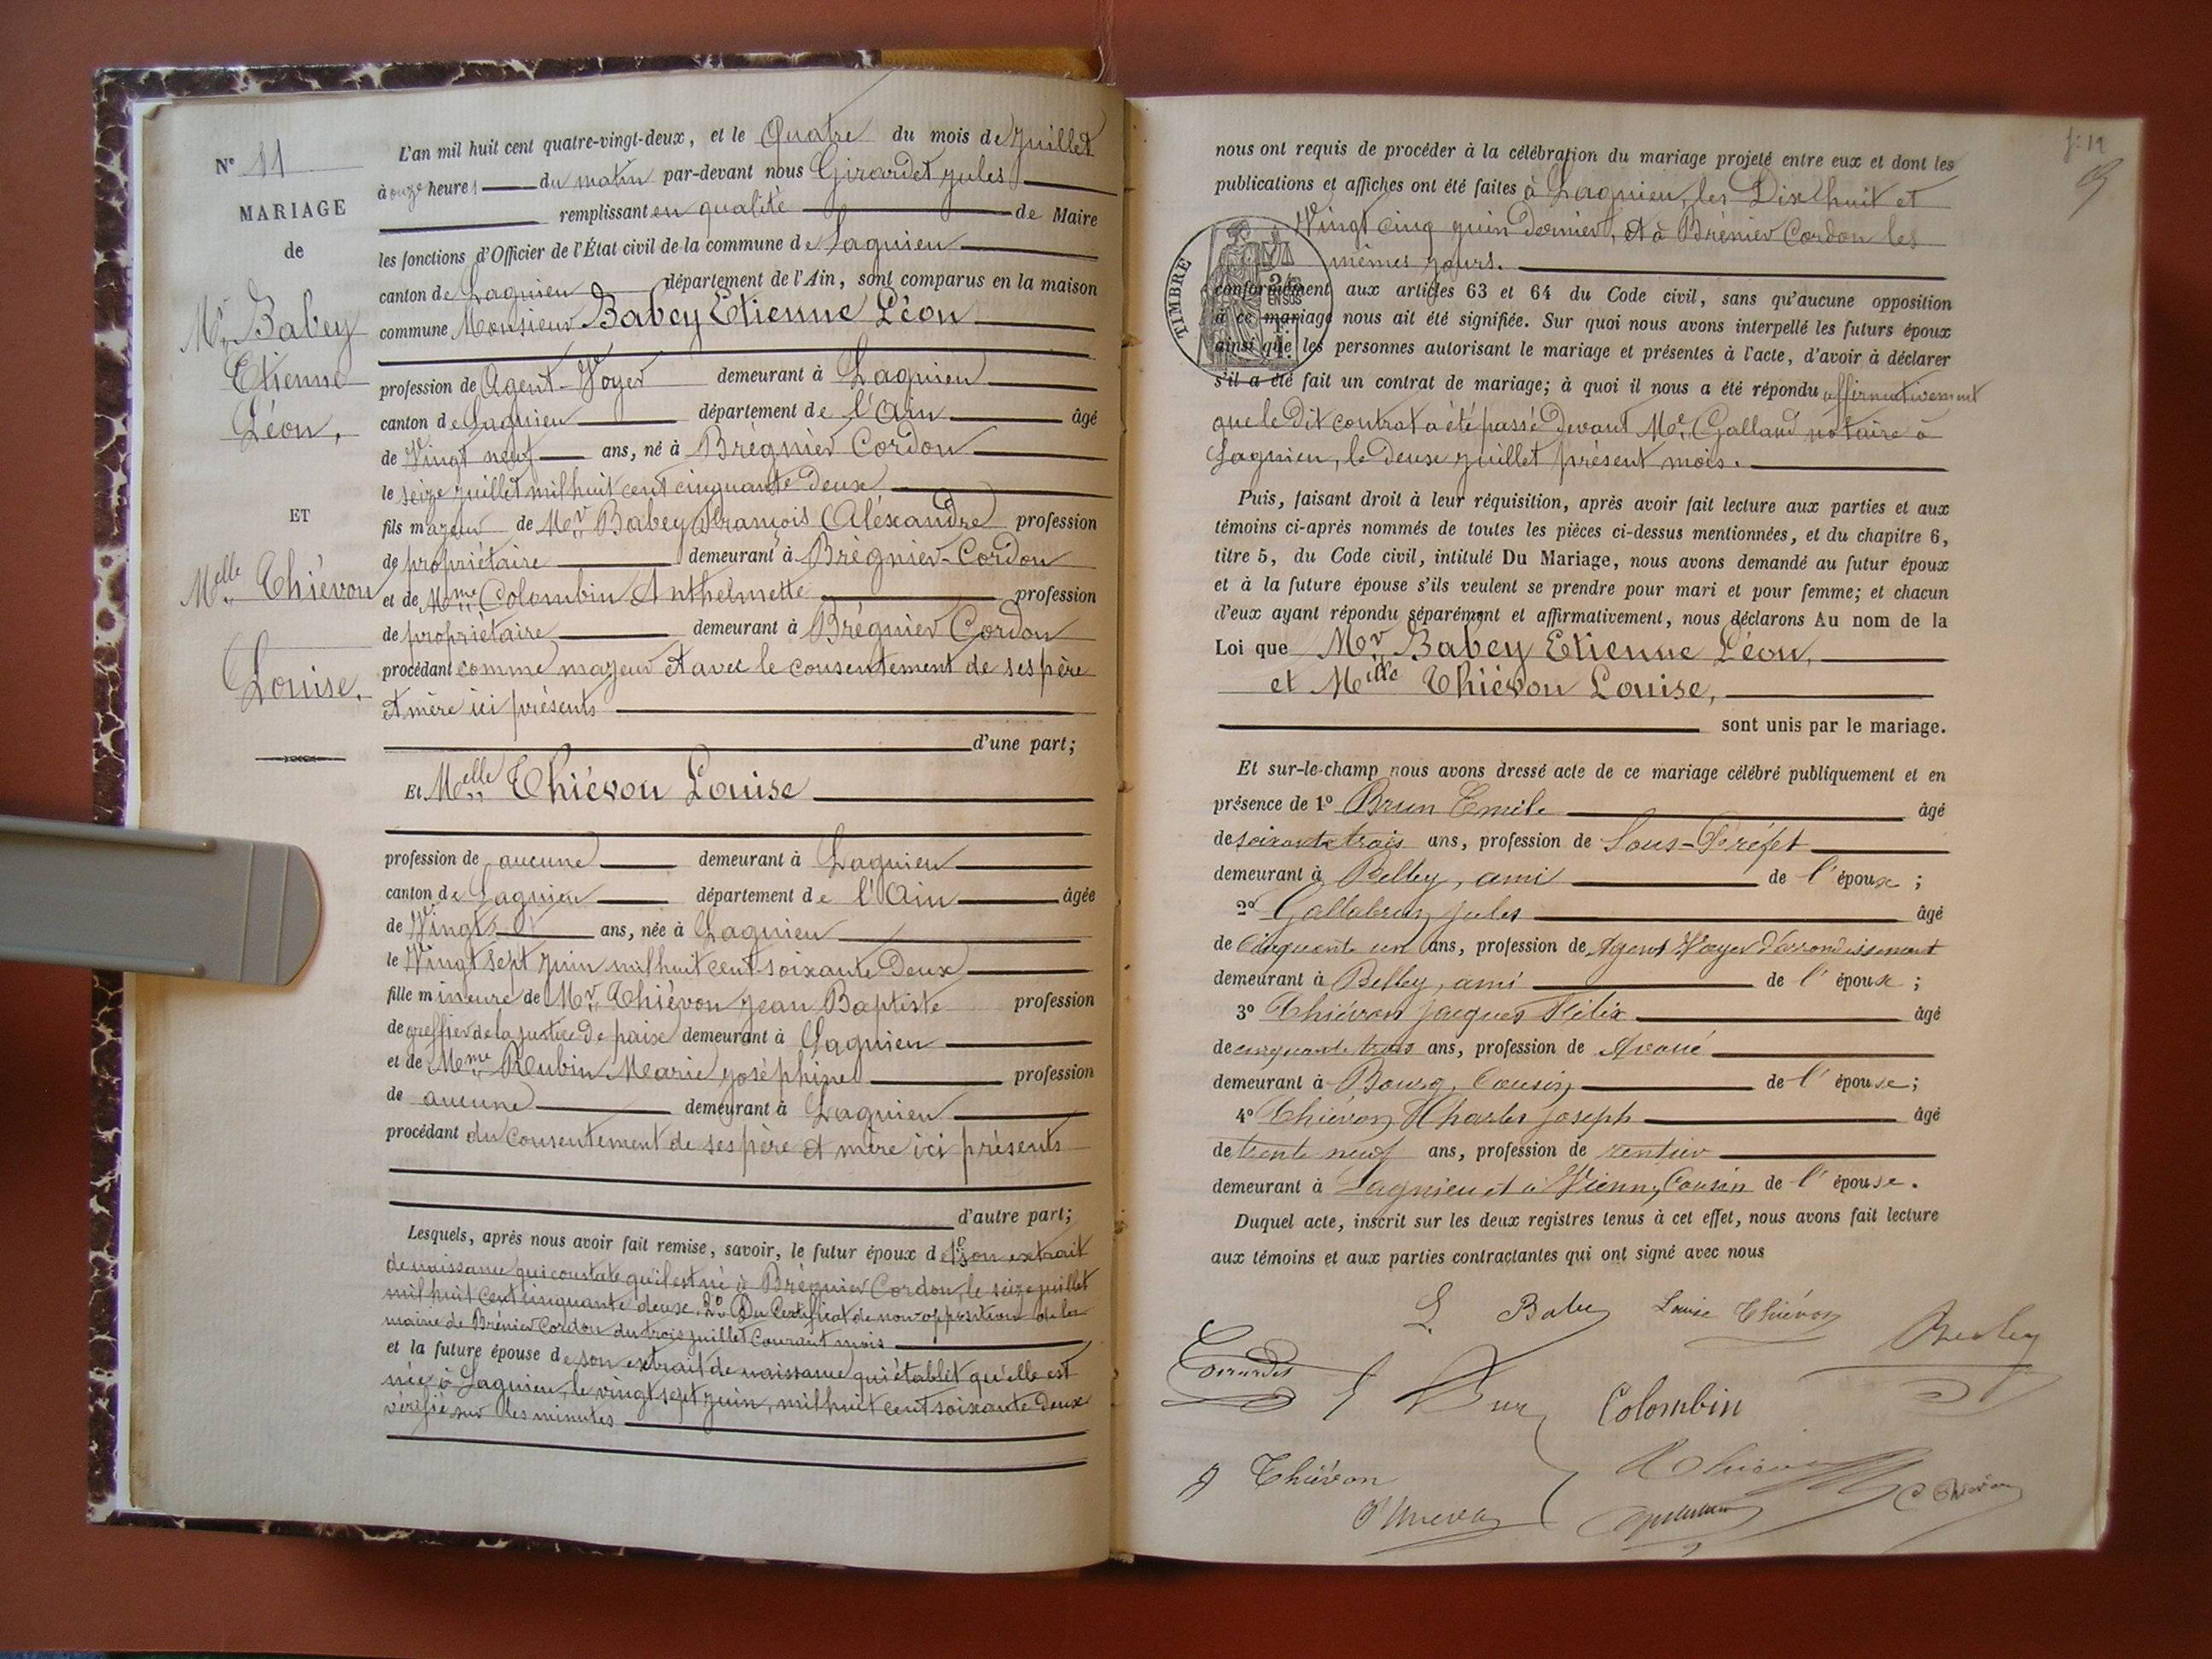 N° 11
MARIAGE
de
Mr Babey
Etienne
Léon,
ET
Melle Thiévon
Louise.
L'an mil huit cent quatre-vingt-deux, et le Quatre du mois de Juillet
à onze heures du matin par-devant nous Girardet Jules
remplissant en qualité de Maire
les fonctions d'Officier de l'État civil de la commune de Lagnieu
canton de Lagnieu département de l'Ain, sont comparus en la maison
commune Monsieur Babey Etienne Léon
profession de Agent-Voyer demeurant à Lagnieu
canton de Lagnieu département de l'Ain âgé
de Vingt neuf ans, né à Brégnier Cordon
le seize juillet mil huit cent cinquante deux
fils majeur de Mr Babey François Aléxandre profession
de propriétaire demeurant à Brégnier-Cordon
et de Mme Colombin Anthelmette profession
de propriétaire demeurant à Brégnier Cordon
procédant comme majeur et avec le consentement de ses père
et mère ici présents
d'une part;
Et Melle Thiévon Louise
profession de aucune demeurant à Lagnieu
canton de Lagnieu département de l'Ain âgée
de Vingt ans, née à Lagnieu
le Vingt sept juin mil huit cent soixante Deux
fille mineure de Mr Thiévon Jean Baptiste profession
de greffier de la justice de paix demeurant à Lagnieu
et de Mme Rubin Marie Joséphine profession
de aucune demeurant à Lagnieu
procédant du consentement de ses père et mère ici présents
d'autre part;
Lesquels, après nous avoir fait remise, savoir, le futur époux de 1° son extrait
de naissance qui constate qu'il est né à Brégnier Cordon, le seize juillet
mil huit cent cinquante deux. 2° Du Certificat de non-opposition de la
mairie de Brénier Cordon du trois juillet courant mois
et la future épouse de son extrait de naissance qui établit qu'elle est
née à Lagnieu, le vingt sept juin, mil huit cent soixante deux
vérifié sur les minutes
f: 12
nous ont requis de procéder à la célébration du mariage projeté entre eux et dont les
publications et affiches ont été faites à Lagnieu, les Dix huit et
Vingt cinq juin dernier, et à Brénier Cordon les
mêmes jours.
TIMBRE
2/10
EN SUS
conformément aux articles 63 et 64 du Code civil, sans qu'aucune opposition
à ce mariage nous ait été signifiée. Sur quoi nous avons interpellé les futurs époux
ainsi que les personnes autorisant le mariage et présentes à l'acte, d'avoir à déclarer
s'il a été fait un contrat de mariage; à quoi il nous a été répondu affirmativement
que le Dit contrat a été passé Devant Me Galland notaire à
Lagnieu, le Deux juillet présent mois.
Puis, faisant droit à leur réquisition, après avoir fait lecture aux parties et aux
témoins ci-après nommés de toutes les pièces ci-dessus mentionnées, et du chapitre 6,
titre 5, du Code civil, intitulé Du Mariage, nous avons demandé au futur époux
et à la future épouse s'ils veulent se prendre pour mari et pour femme; et chacun
d'eux ayant répondu séparément et affirmativement, nous déclarons Au nom de la
Loi que Mr Babey Etienne Léon,
et Melle Thiévon Louise,
sont unis par le mariage.
Et sur-le-champ nous avons dressé acte de ce mariage célébré publiquement et en
présence de 1° Brun Emile âgé
de soixante trois ans, profession de Sous-Préfet
demeurant à Belley, ami de l'époux;
2° Jules âgé
de Cinquante un ans, profession de Agent Voyer d'arrondissement
demeurant à Belley, ami de l'époux;
3° Thiévon Jacques Félix âgé
de cinquante trois ans, profession de Avoué
demeurant à Bourg, Cousin, de l'épouse;
4° Thiévon Charles Joseph âgé
de trente neuf ans, profession de rentier
demeurant à Lagnieu et à Vienne, Cousin de l'épouse.
Duquel acte, inscrit sur les deux registres tenus à cet effet, nous avons fait lecture
aux témoins et aux parties contractantes qui ont signé avec nous
L. Babey Louise Thiévon
Colombin
Thiévon